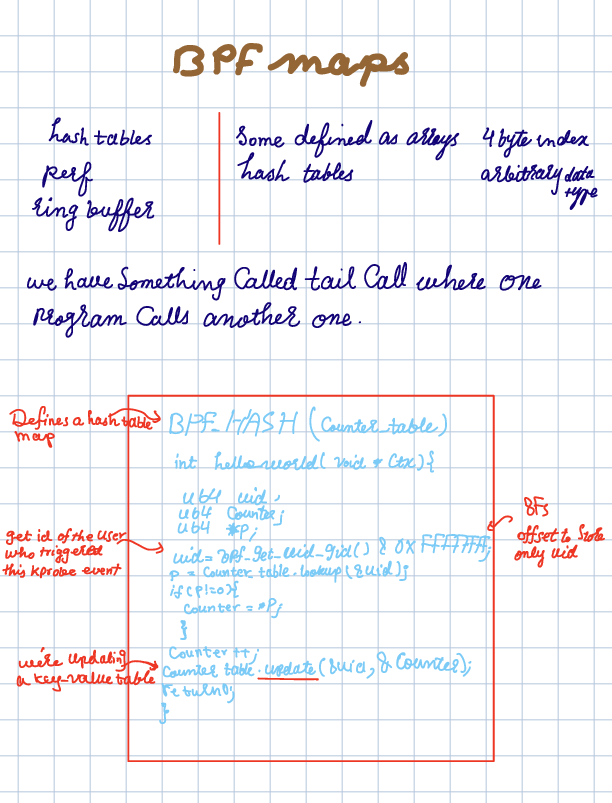 BPF maps
hash tables
perf
ring buffer
Some defined as arrays 4 byte index
hash tables arbitrary data type
we have Something Called tail Call where one
program Calls another one.
Defines a hash table
map
BPF_HASH (Counter_table)
int hello_world( void * Ctx){
u64 uid;
u64 Counter;
u64 *P;
get id of the user
who triggered
this kprobe event
uid = bpf_get_uid_gid() & 0X FFFFFFFF;
8Fs
offset to Store
only uid
P = Counter table.lookup(&uid);
if (P!=0){
Counter = *P;
}
Counter++;
we're updating
a key-value table
Counter table.update(&uid, & Counter);
return 0;
}